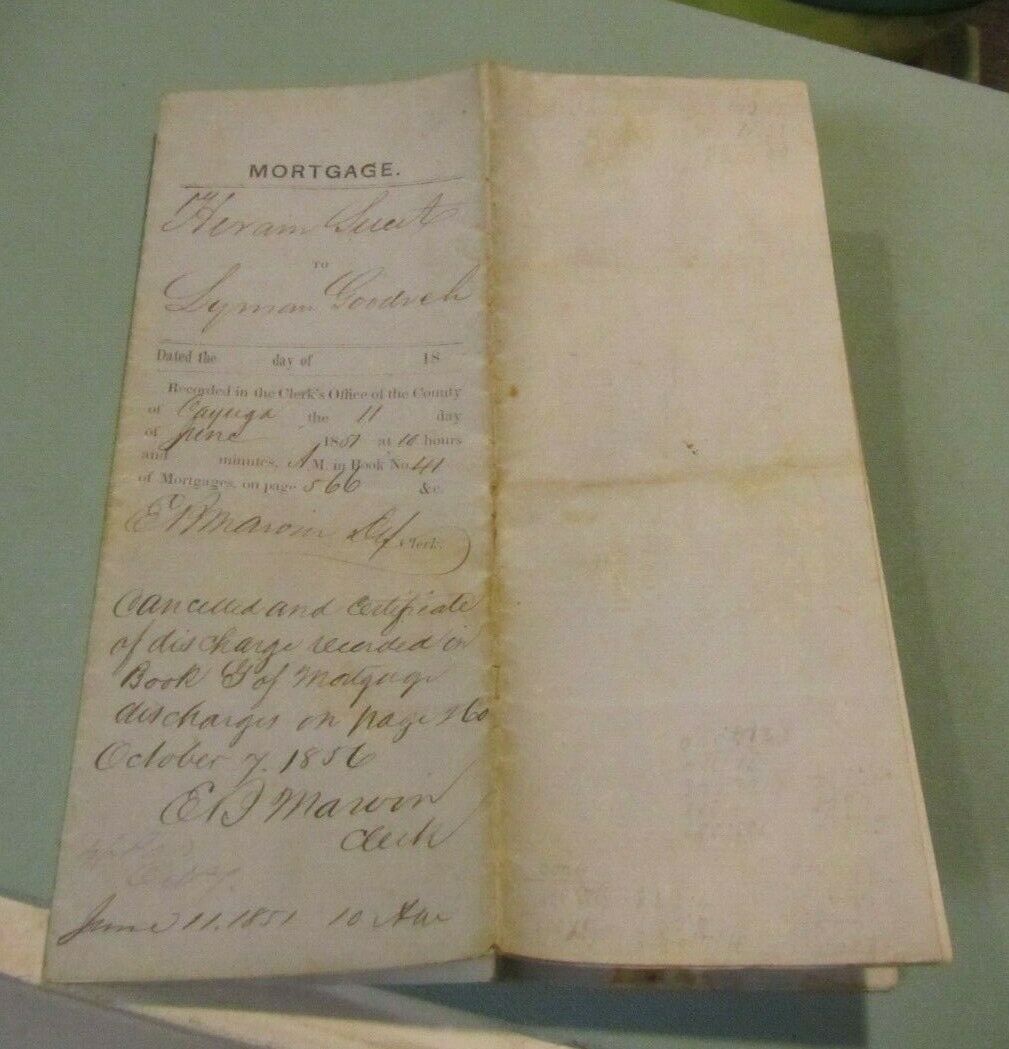 MORTGAGE.
Hiram
TO
Lyman Goodrich
Dated the day of 18
Recorded in the Clerk's Office of the County
of Cayuga the 11 day
of June 1851 at 10 hours
and minutes, A M. in Book No. 41
of Mortgages, on page 566 &c.
Marvin Clerk.
Cancelled and certificate
of discharge recorded in
Book G of Mortgage
discharges on page 260
October 7. 1856
Marvin
Clerk
June 11. 1851 10 AM